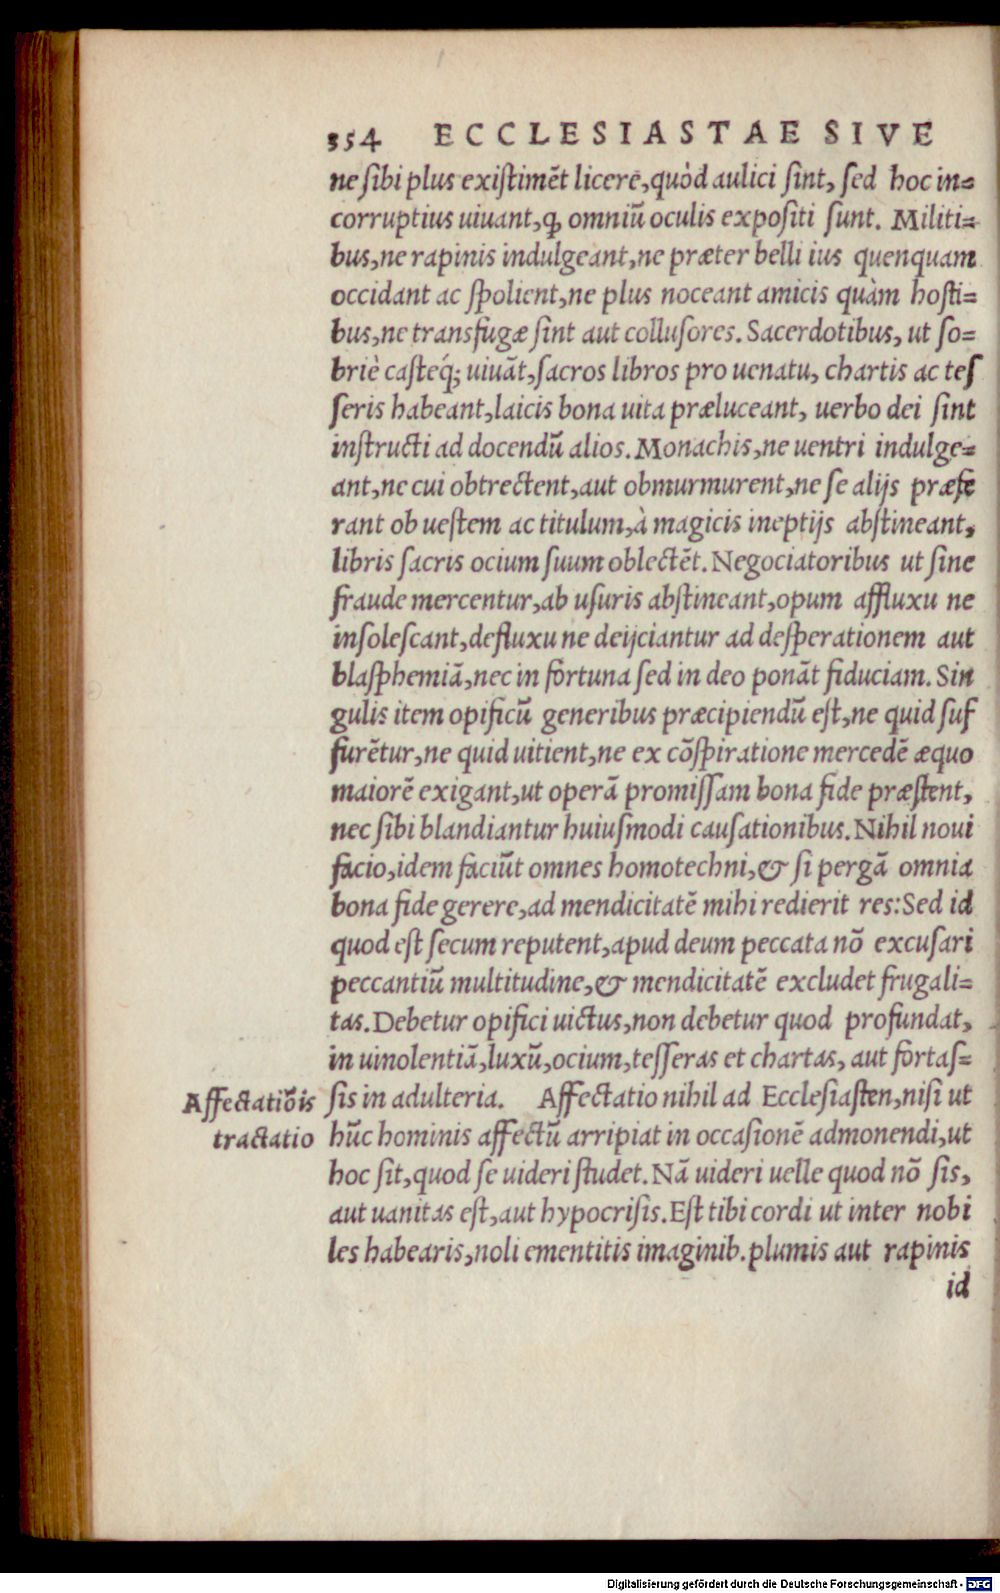 354 ECCLESIASTAE SIVE
ne sibi plus existimēt licere, quòd aulici sint, sed hoc in=
corruptius uiuant, ꝙ omniū oculis expositi sunt. Militi=
bus, ne rapinis indulgeant, ne præter belli ius quenquam
occidant ac spolient, ne plus noceant amicis quàm hosti=
bus, ne transfugæ sint aut collusores. Sacerdotibus, ut so=
briè casteq́; uiuāt, sacros libros pro uenatu, chartis ac tes
seris habeant, laicis bona uita præluceant, uerbo dei sint
instructi ad docendū alios. Monachis, ne uentri indulge=
ant, ne cui obtrectent, aut obmurmurent, ne se alijs præfe
rant ob uestem ac titulum, à magicis ineptijs abstineant,
libris sacris ocium suum oblectēt. Negociatoribus ut sine
fraude mercentur, ab usuris abstineant, opum affluxu ne
insolescant, defluxu ne deijciantur ad desperationem aut
blasphemiā, nec in fortuna sed in deo ponāt fiduciam. Sin
gulis item opificū generibus præcipiendū est, ne quid suf
furētur, ne quid uitient, ne ex cōspiratione mercedē æquo
maiorē exigant, ut operā promissam bona fide præstent,
nec sibi blandiantur huiusmodi causationibus. Nihil noui
facio, idem faciūt omnes homotechni, & si pergā omnia
bona fide gerere, ad mendicitatē mihi redierit res: Sed id
quod est secum reputent, apud deum peccata nō excusari
peccantiū multitudine, & mendicitatē excludet frugali=
tas. Debetur opifici uictus, non debetur quod profundat,
in uinolentiā, luxū, ocium, tesseras et chartas, aut fortas=
Affectatiōis sis in adulteria. Affectatio nihil ad Ecclesiasten, nisi ut
tractatio hūc hominis affectū arripiat in occasionē admonendi, ut
hoc sit, quod se uideri studet. Nā uideri uelle quod nō sis,
aut uanitas est, aut hypocrisis. Est tibi cordi ut inter nobi
les habearis, noli ementitis imaginib. plumis aut rapinis
id
Digitalisierung gefördert durch die Deutsche Forschungsgemeinschaft - DFG